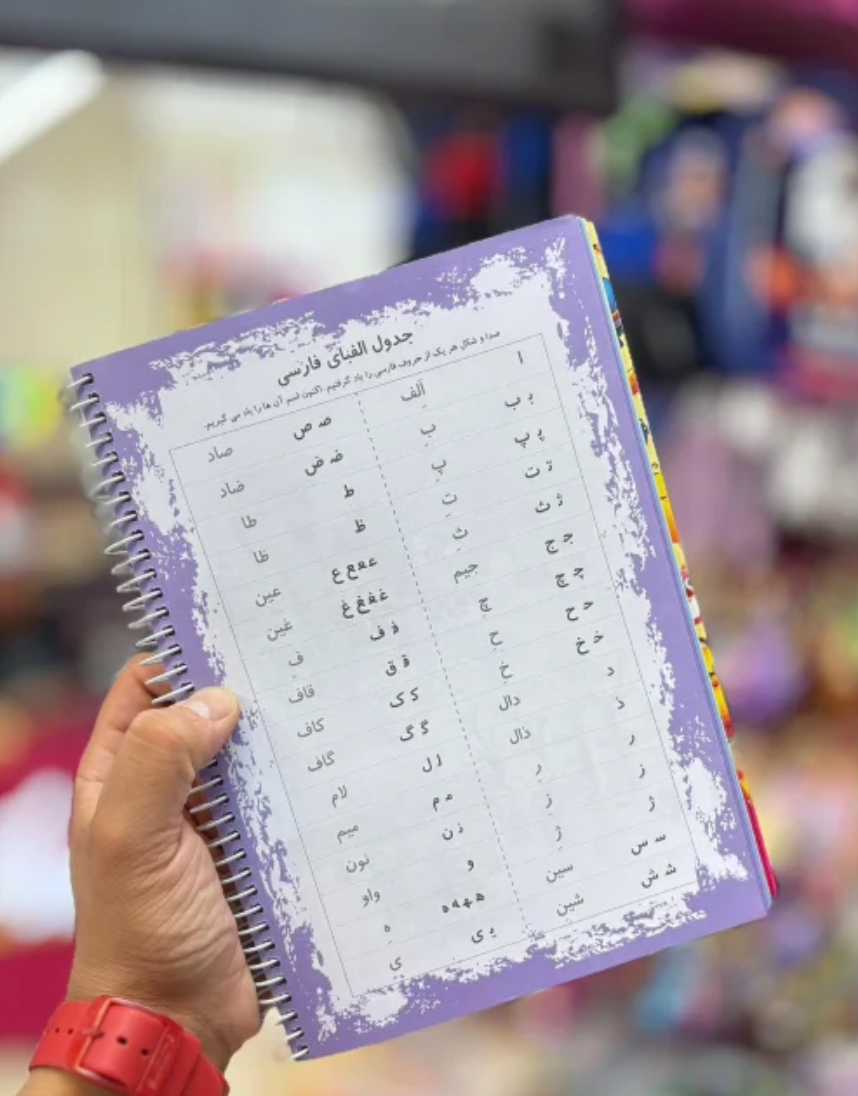 جدول الفبای فارسی
صدا و شکل هر یک از حروف فارسی را یاد گرفتیم. اکنون اسم آن ها را یاد می گیریم.
ا اَلِف صـ ص صاد
بـ ب بِ ضـ ض ضاد
پـ پ پِ ط طا
تـ ت تِ ظ ظا
ثـ ث ثِ عـ ـعـ ـع ع عین
جـ ج جیم غـ ـغـ ـغ غ غین
چـ چ چِ فـ ف فِ
حـ ح حِ قـ ق قاف
خـ خ خِ کـ ک کاف
د دال گـ گ گاف
ذ ذال لـ ل لام
ر رِ مـ م میم
ز زِ نـ ن نون
ژ ژِ و واو
سـ س سین هـ ـهـ ـه ه هِ
شـ ش شین یـ ی یِ